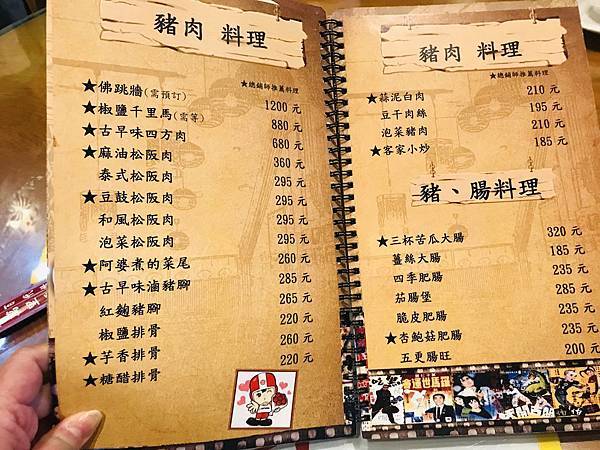 豬肉 料理
★總舖師推薦料理
★佛跳牆(需預訂) 1200 元
★椒鹽千里馬(需等) 880 元
★古早味四方肉 680 元
★麻油松阪肉 360 元
泰式松阪肉 295 元
★豆鼓松阪肉 295 元
和風松阪肉 295 元
泡菜松阪肉 295 元
★阿婆煮的菜尾 260 元
★古早味滷豬腳 285 元
紅麴豬腳 265 元
椒鹽排骨 220 元
★芋香排骨 260 元
★糖醋排骨 220 元
豬肉 料理
★總舖師推薦料理
★蒜泥白肉 210 元
豆干肉絲 195 元
泡菜豬肉 210 元
★客家小炒 185 元
豬、腸料理
★三杯苦瓜大腸 320 元
薑絲大腸 185 元
四季肥腸 235 元
茄腸堡 285 元
脆皮肥腸 235 元
★杏鮑菇肥腸 235 元
五更腸旺 200 元